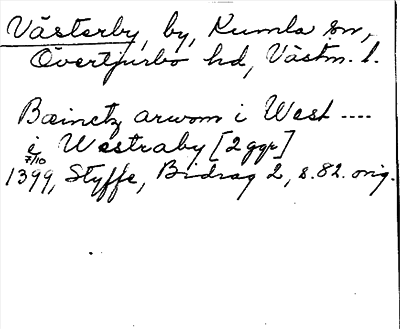 Västerby, by, Kumla sn,
Övertjurbo hd, Västm. l.
Bæinctz arwom i West ....
i Westraby [2 ggr]
7/10
1399, Styffe, Bidrag 2, s. 82. orig.